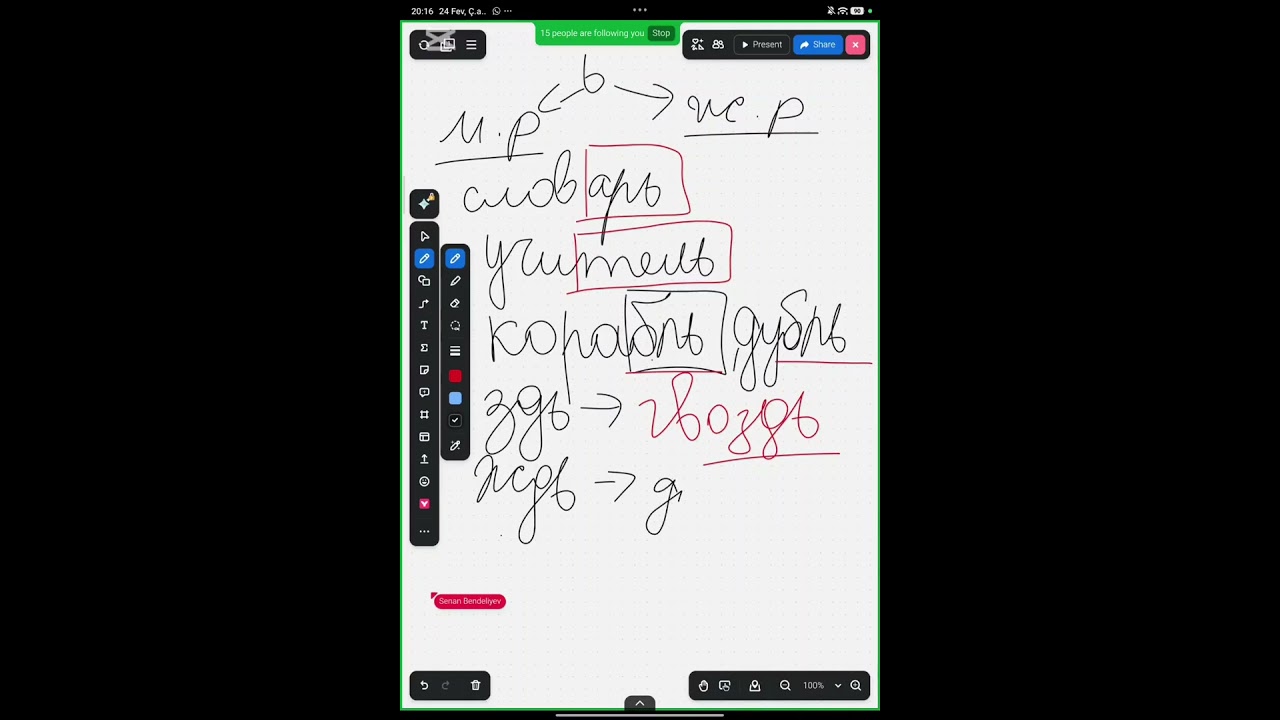 20:16 24 Fev, Ç.a.. ...
90
15 people are following you Stop
Present Share
ь
м.р ж.р
словарь
учитель
корабль, дубль
здь → гвоздь
ждь → д
Senan Bendeliyev
100%